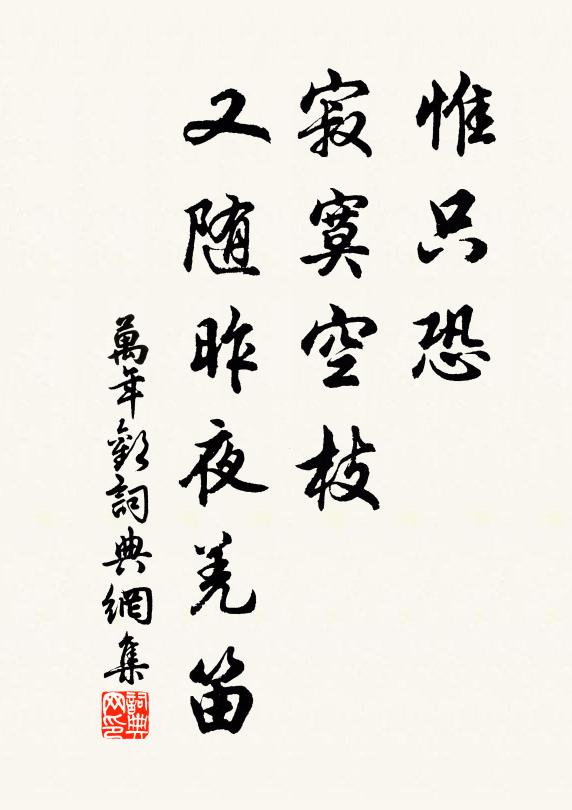 惟只恐
寂寞空枝
又随昨夜羌笛
萬年歡詞典網集
詞典网印